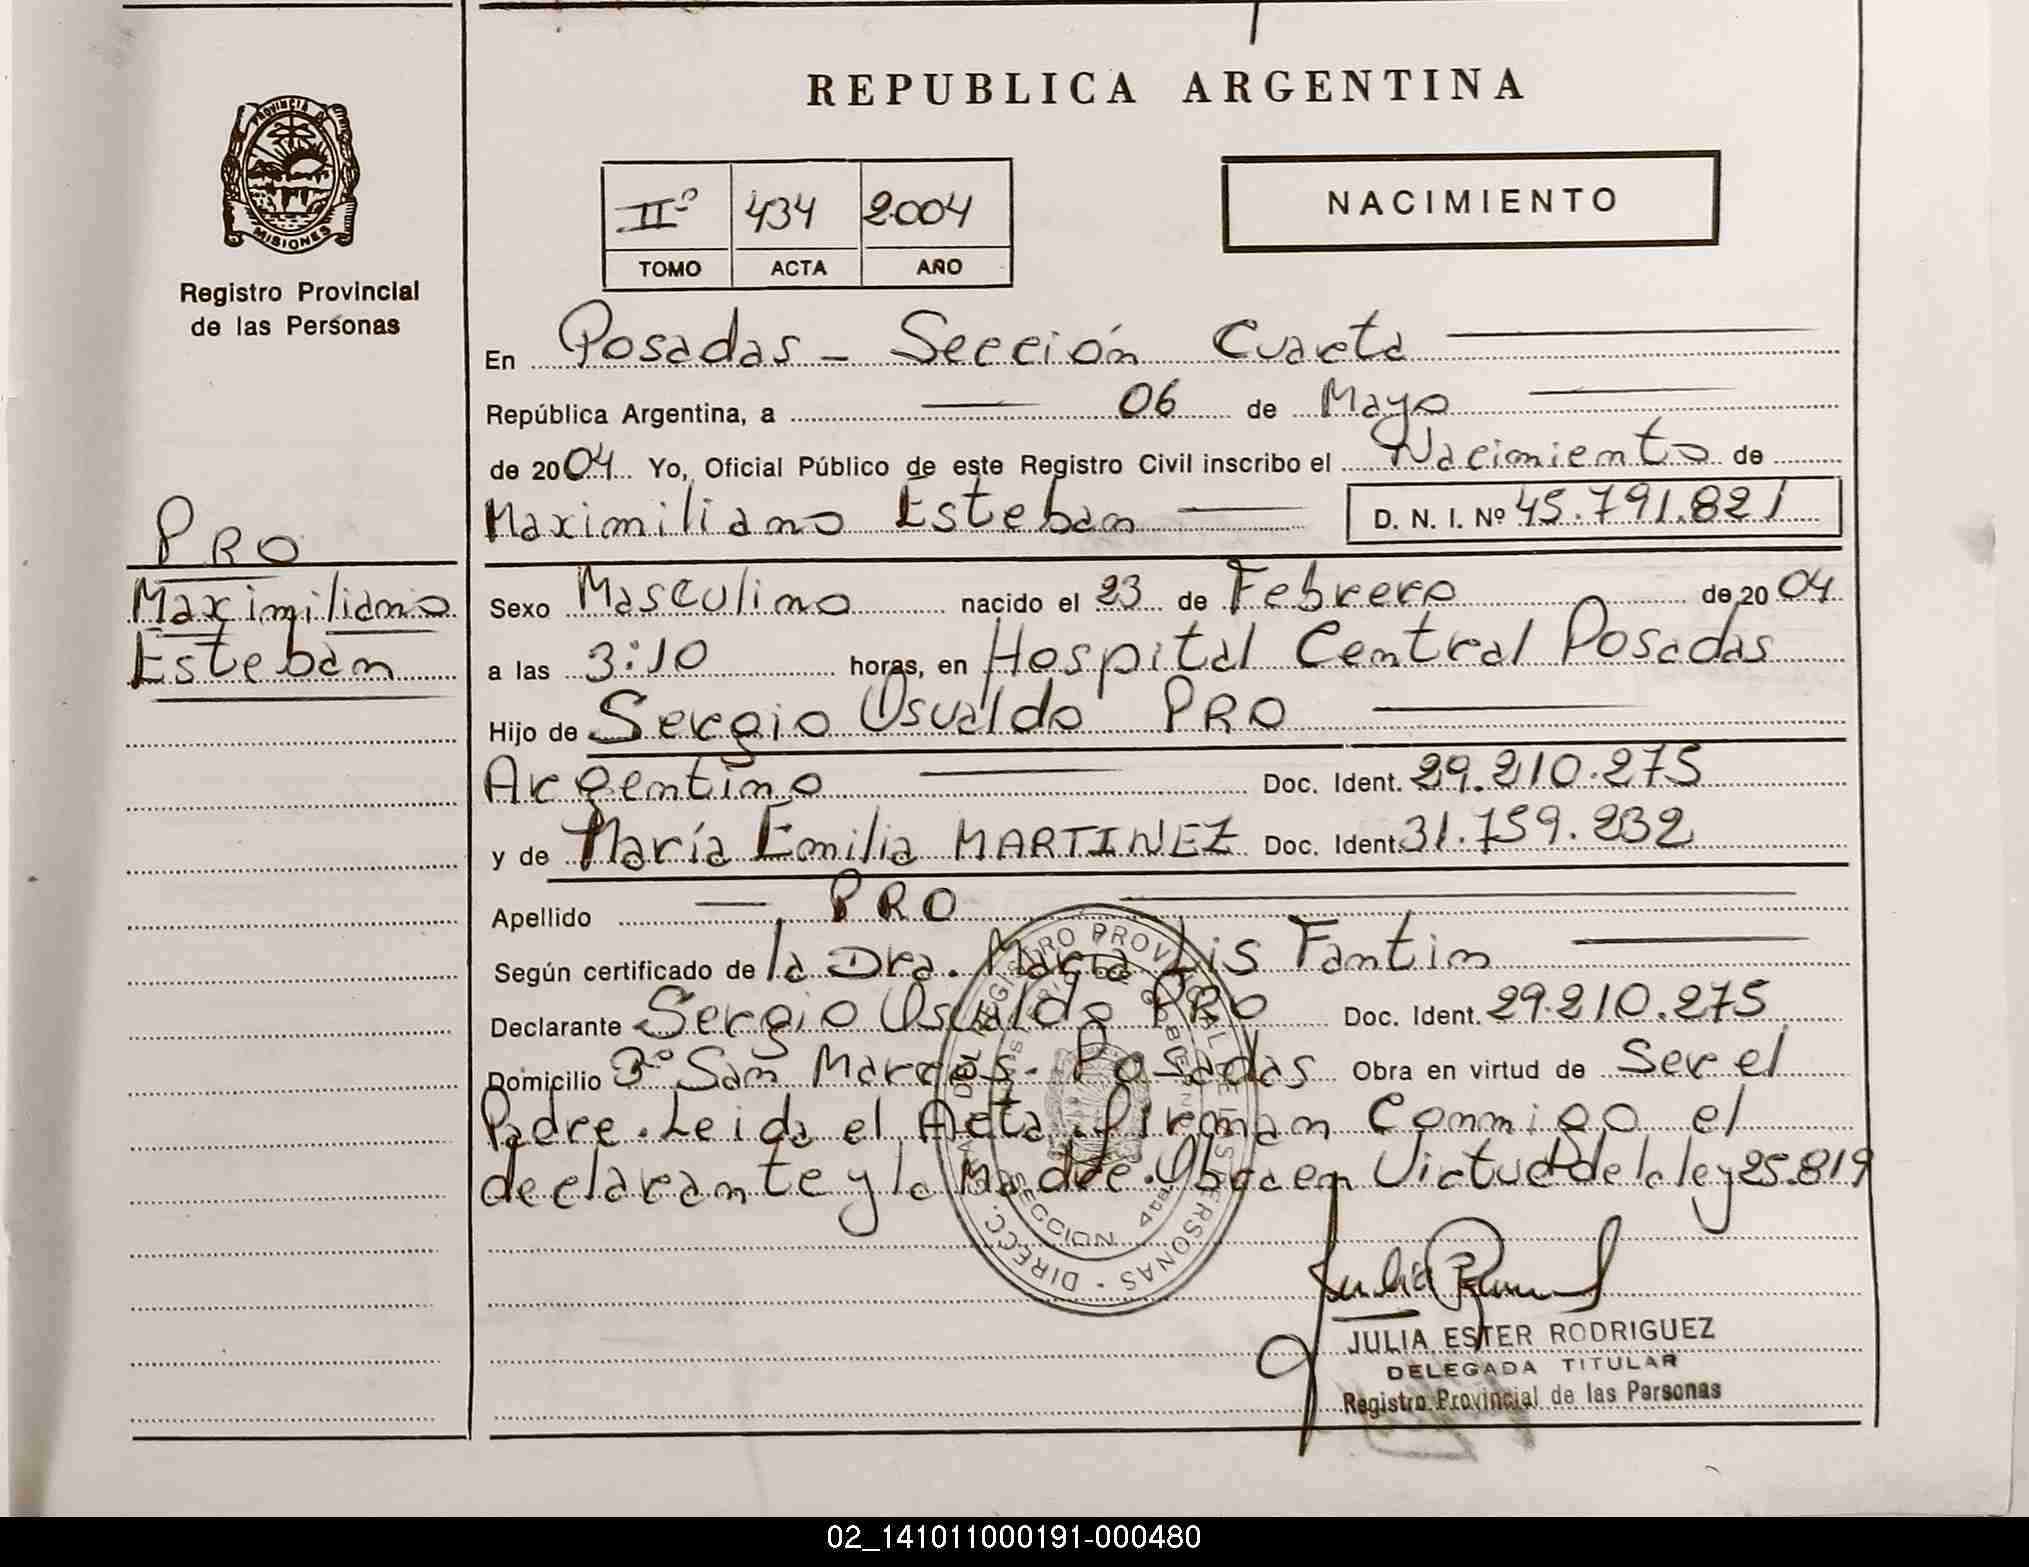 REPUBLICA ARGENTINA
PROVINCIA DE
MISIONES
Registro Provincial
de las Personas
IIº 434 2004
TOMO ACTA AÑO
NACIMIENTO
En Posadas - Sección Cuarta
República Argentina, a 06 de Mayo
de 2004 Yo, Oficial Público de este Registro Civil inscribo el Nacimiento de
Maximiliano Esteban D. N. I. Nº 45.791.821
PRO
Maximiliano
Esteban
Sexo Masculino nacido el 23 de Febrero de 2004
a las 3:10 horas, en Hospital Central Posadas
Hijo de Sergio Osvaldo PRO
Argentino Doc. Ident. 29.210.275
y de María Emilia MARTINEZ Doc. Ident. 31.759.232
Apellido PRO
Según certificado de la Dra. María Lis Fantin
Declarante Sergio Osvaldo PRO Doc. Ident. 29.210.275
Domicilio 3º San Marcos - Posadas Obra en virtud de Ser el
Padre. Leida el Acta, firman Conmigo el
declarante y la Madre. Obra en Virtud de la ley 25.819
SECCION 4ta
JULIA ESTER RODRIGUEZ
DELEGADA TITULAR
Registro Provincial de las Personas
02_141011000191-000480